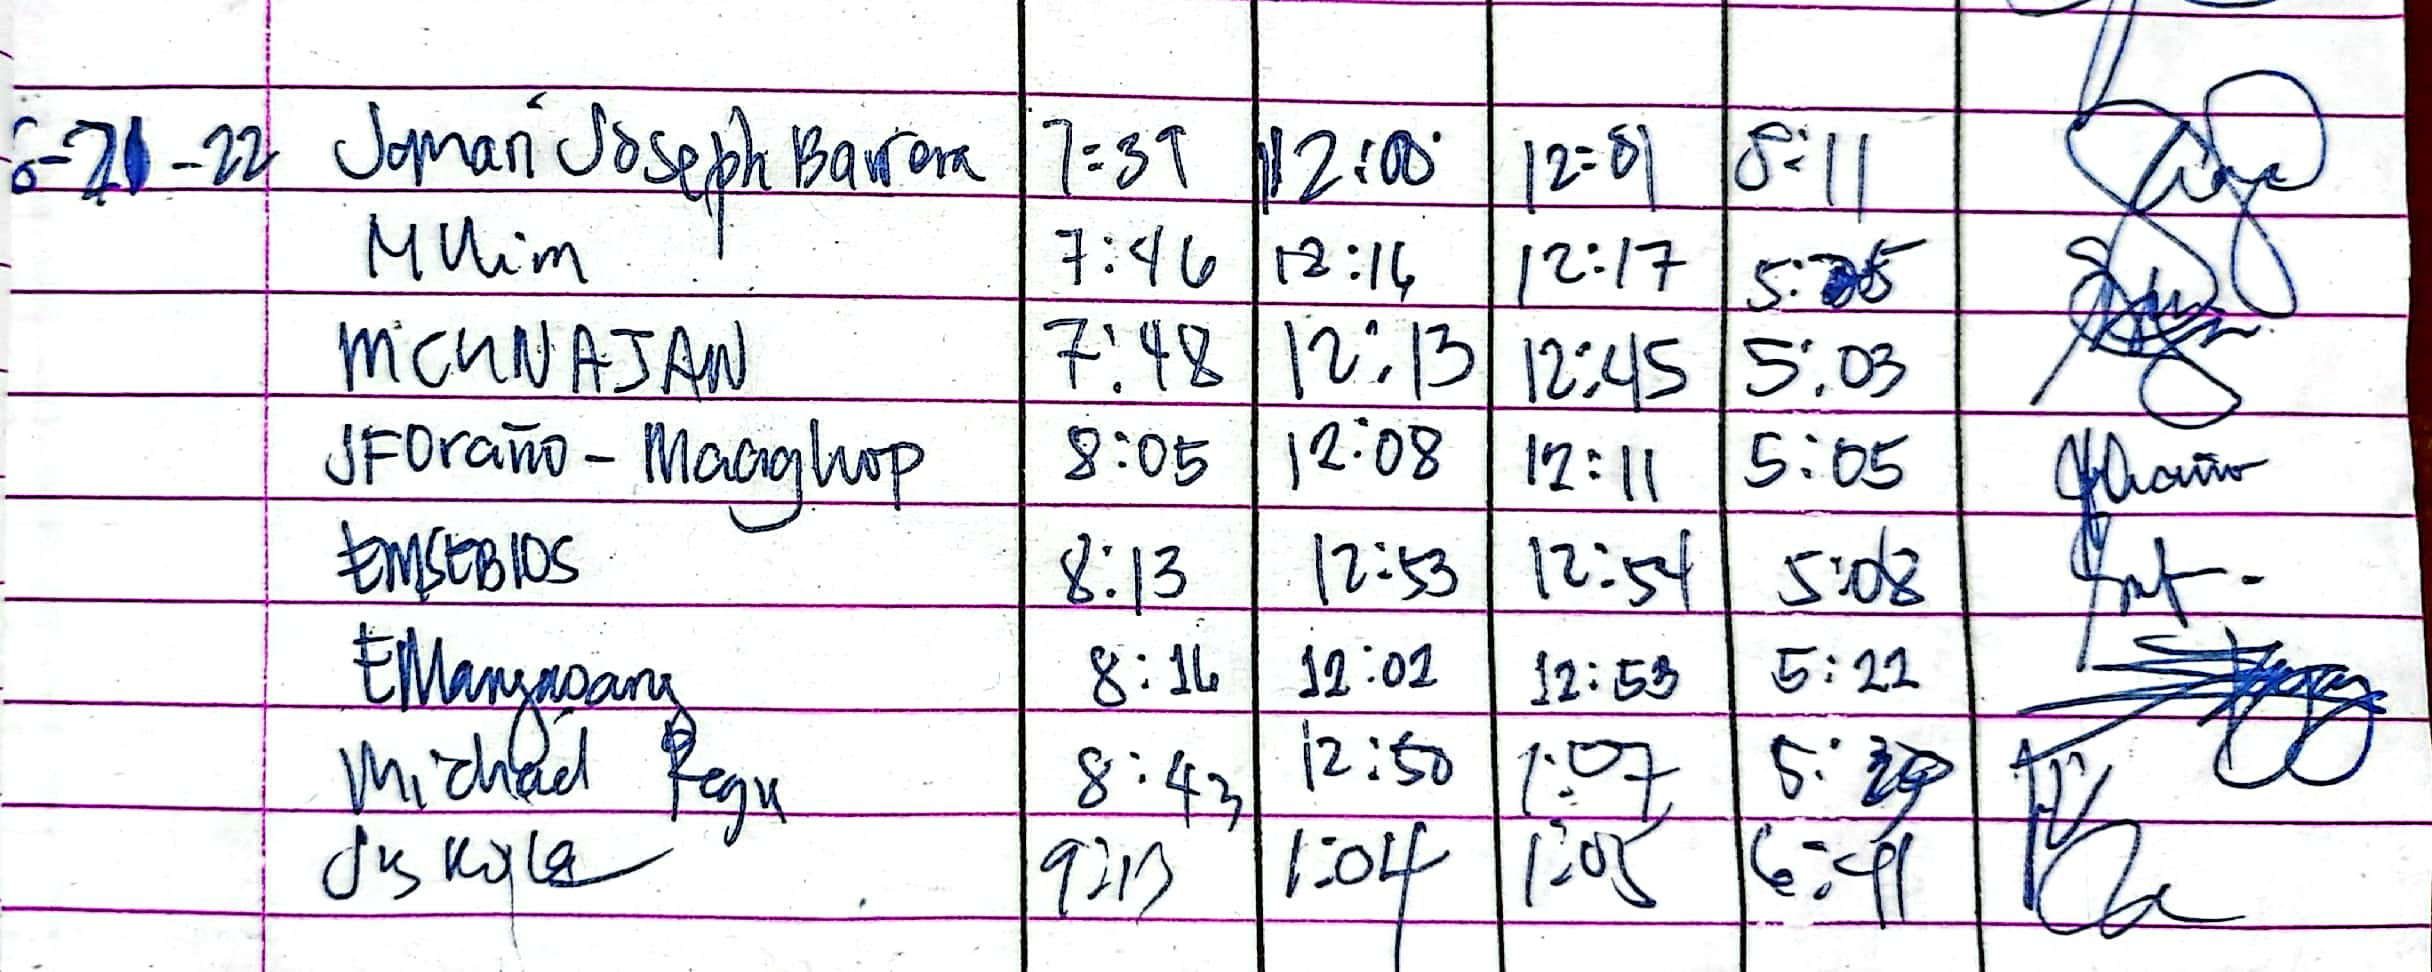 6-21-22 Joman Joseph Barrera 7:39 12:00 12:01 8:11
MUlim 7:46 12:16 12:17 5:05
MCUNAJAN 7:48 12:13 12:45 5:03
JFOraño - Maaghop 8:05 12:08 12:11 5:05
EMSEBIOS 8:13 12:53 12:54 5:08
8:16 12:02 12:53 5:22
Michael 8:43 12:50 1:07 5:
9:13 1:04 1:05 6:41